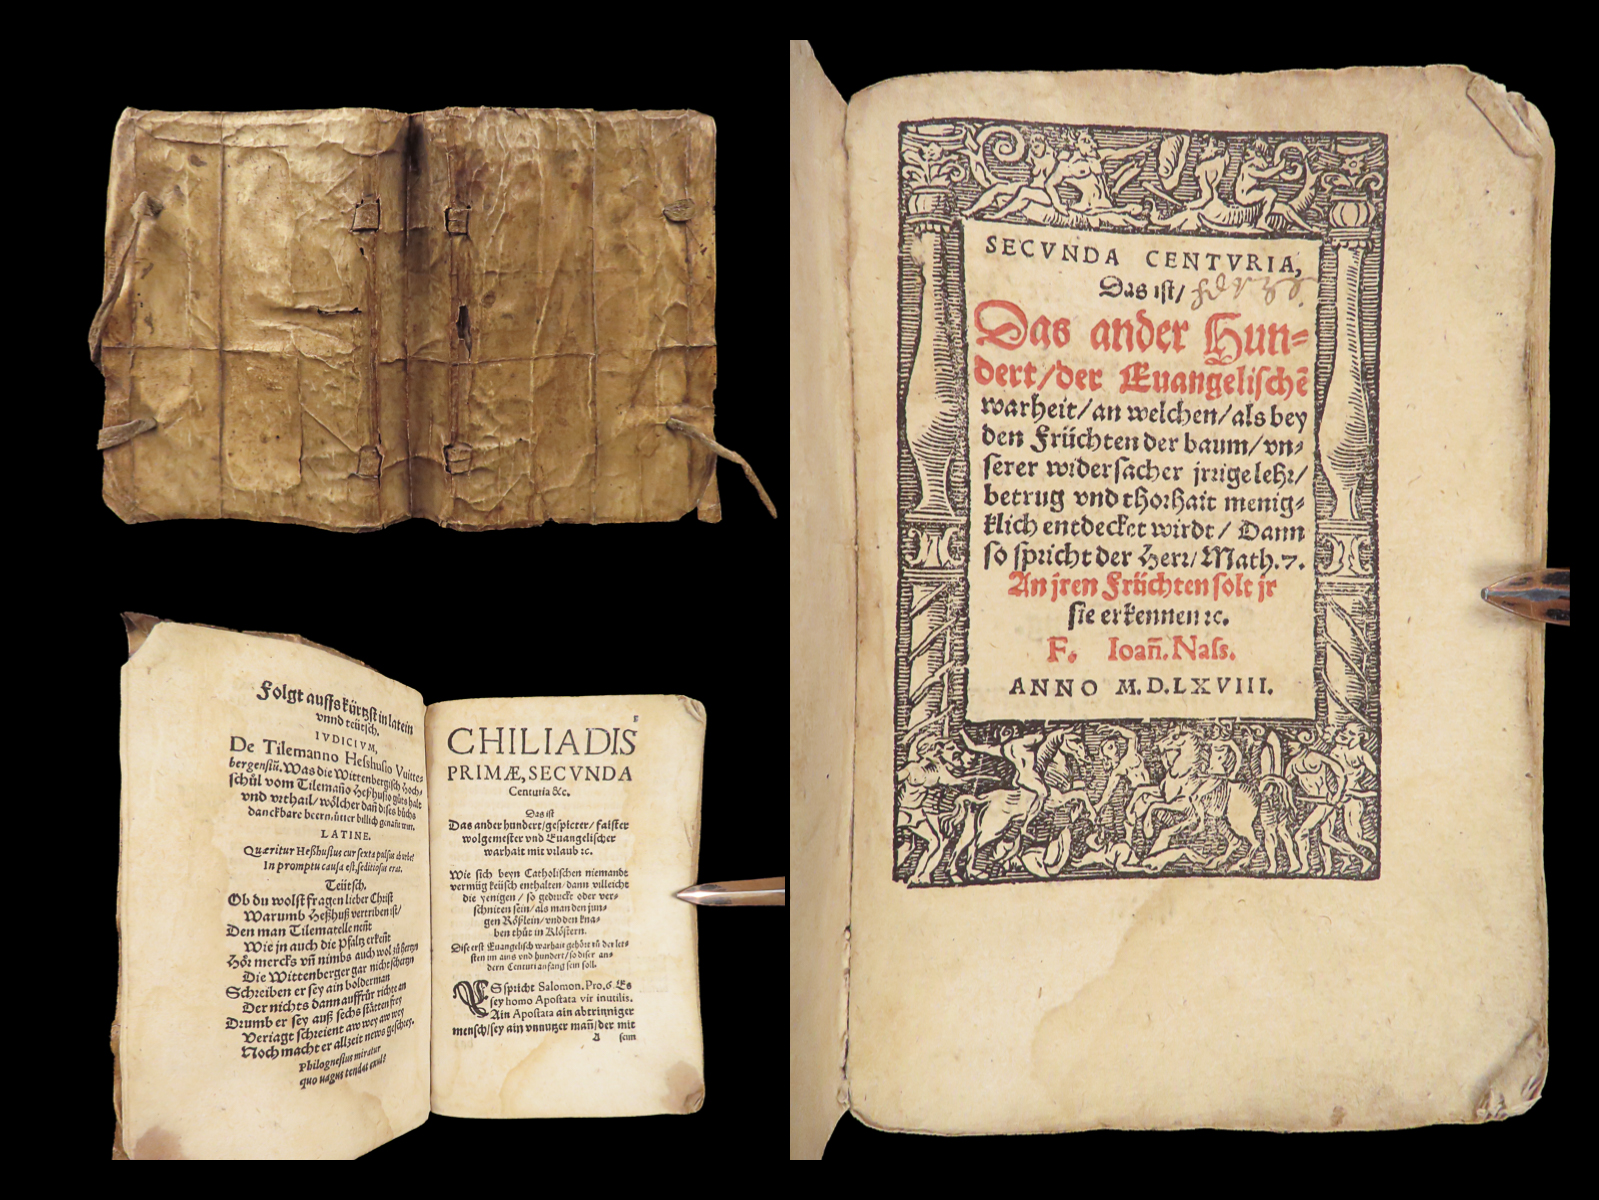 SECVNDA CENTVRIA,
Das ist/
Das ander Hun-
dert/der Euangelischẽ
warheit/an welchen/als bey
den Früchten der baum/vn-
serer widersacher jrrige lehr/
betrug vnd thorhait menig-
klich entdecket wirdt/ Dann
so spricht der Herr/Math.7.
An jren Früchten solt jr
sie erkennen ꝛc.
F. Ioañ. Nass.
ANNO M.D.LXVIII.
Folgt auffs kürtzst in latein
vnnd teütsch.
IVDICIVM,
De Tilemanno Heshusio Vuitte-
bergensiũ. Was die Wittenbergisch hoch-
schůl vom Tilemaño Heßhusio gůts halt
vnd vrthail/wölcher dañ dises bůchs
danckbare
LATINE.
Quæritur Heßhusius cur sexta pulsus ab vrbe?
In promptu causa est, seditiosus erat.
Teütsch.
Ob du wolst fragen lieber Christ
Warumb Heßhuß vertriben ist/
Den man Tilematelle neñt
Wie jn auch die Pfaltz erkeñt
Hör mercks vñ nimbs auch wol zů hertzn
Die Wittenberger gar nicht schertzn
Schreiben er sey ain bolderman
Der nichts dann auffrůr richte an
Drumb er sey auß sechs stätten frey
Veriagt schreient aw wey aw wey
Noch macht er allzeit news geschrey.
Philognesius miratur
quo vagus tendat exul?
CHILIADIS
PRIMÆ, SECVNDA
Centuria &c.
Das ist
Das ander hundert/gespicter/faister
wolgemester vnd Euangelischer
warhait mit vrlaub ꝛc.
Wie sich beyn Catholischen niemandt
vermüg keüsch enthalten/dann villeicht
die yenigen/so gedruckt oder ver-
schniten sein/als man den jun-
gen Rößlein/vnd den kna-
ben thůt in Klöstern.
Dise erst Euangelisch warhait gehört zů der lets-
sten im ains vnd hundert/so diser an-
dern Centuri anfang sein soll.
ES spricht Salomon. Pro.6. Es
sey homo Apostata vir inutilis.
Ain Apostata ain abtrinniger
mensch/sey ain vnnutzer mañ/der mit
A sein